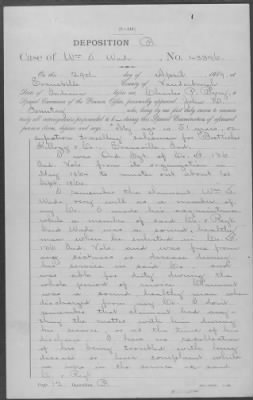 DEPOSITION B
Case of Wm A. Wade, No. 43396
On this 29th day of April, 1889, at
Evansville, County of Vanderburgh
State of Indiana, before me, Charles P.
Special Examiner of the Pension Office, personally appeared John W.
who, being by me first duly sworn to answer
truly all interrogatories propounded to him during this Special Examination of aforesaid
pension claim, deposes and says: My age is 51 years, occ
upation, salesman for
& Co. Evansville, Ind.
I was Ord Sgt. of Co. B 136
Ind Vols from its organization in
May 1864 to muster out about 1st
Sept. 1864.
I remember the claimant Wm A.
Wade, very well as a member of
my Co. I made his acquaintance
while a member of said Co. & Regt.
Said Wade was a sound, healthy
man when he enlisted in Co. B
136 Ind Vols and was free from
any sickness or disease during
his service in said Co. and
was able for duty during the
whole period of service. Claimant
was a sound healthy man when
discharged from my Co. I don't
remember that claimant had any
thing the matter with him during
his service or at the time of his
discharge. I have no recollection
of his being troubled with lung
disease or liver complaint while
in the service in said
Co. & Regt.
Page 12 Deposition B